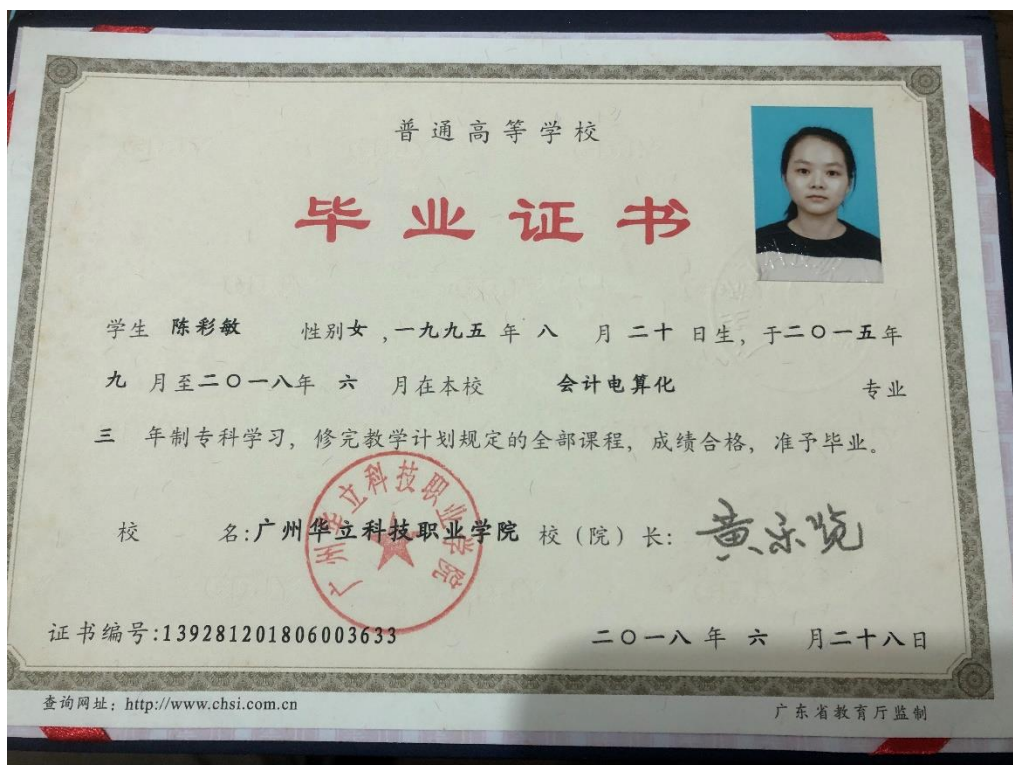 普通高等学校
毕业证书
学生 陈彩敏 性别女，一九九五 年 八 月 二十 日生，于二〇一五年
九 月至二〇一八年 六 月在本校 会计电算化 专业
三 年制专科学习，修完教学计划规定的全部课程，成绩合格，准予毕业。
校 名:广州华立科技职业学院 校（院）长:
广州华立科技职业学院
证书编号:139281201806003633 二〇一八 年 六 月二十八日
查询网址：http://www.chsi.com.cn 广东省教育厅监制